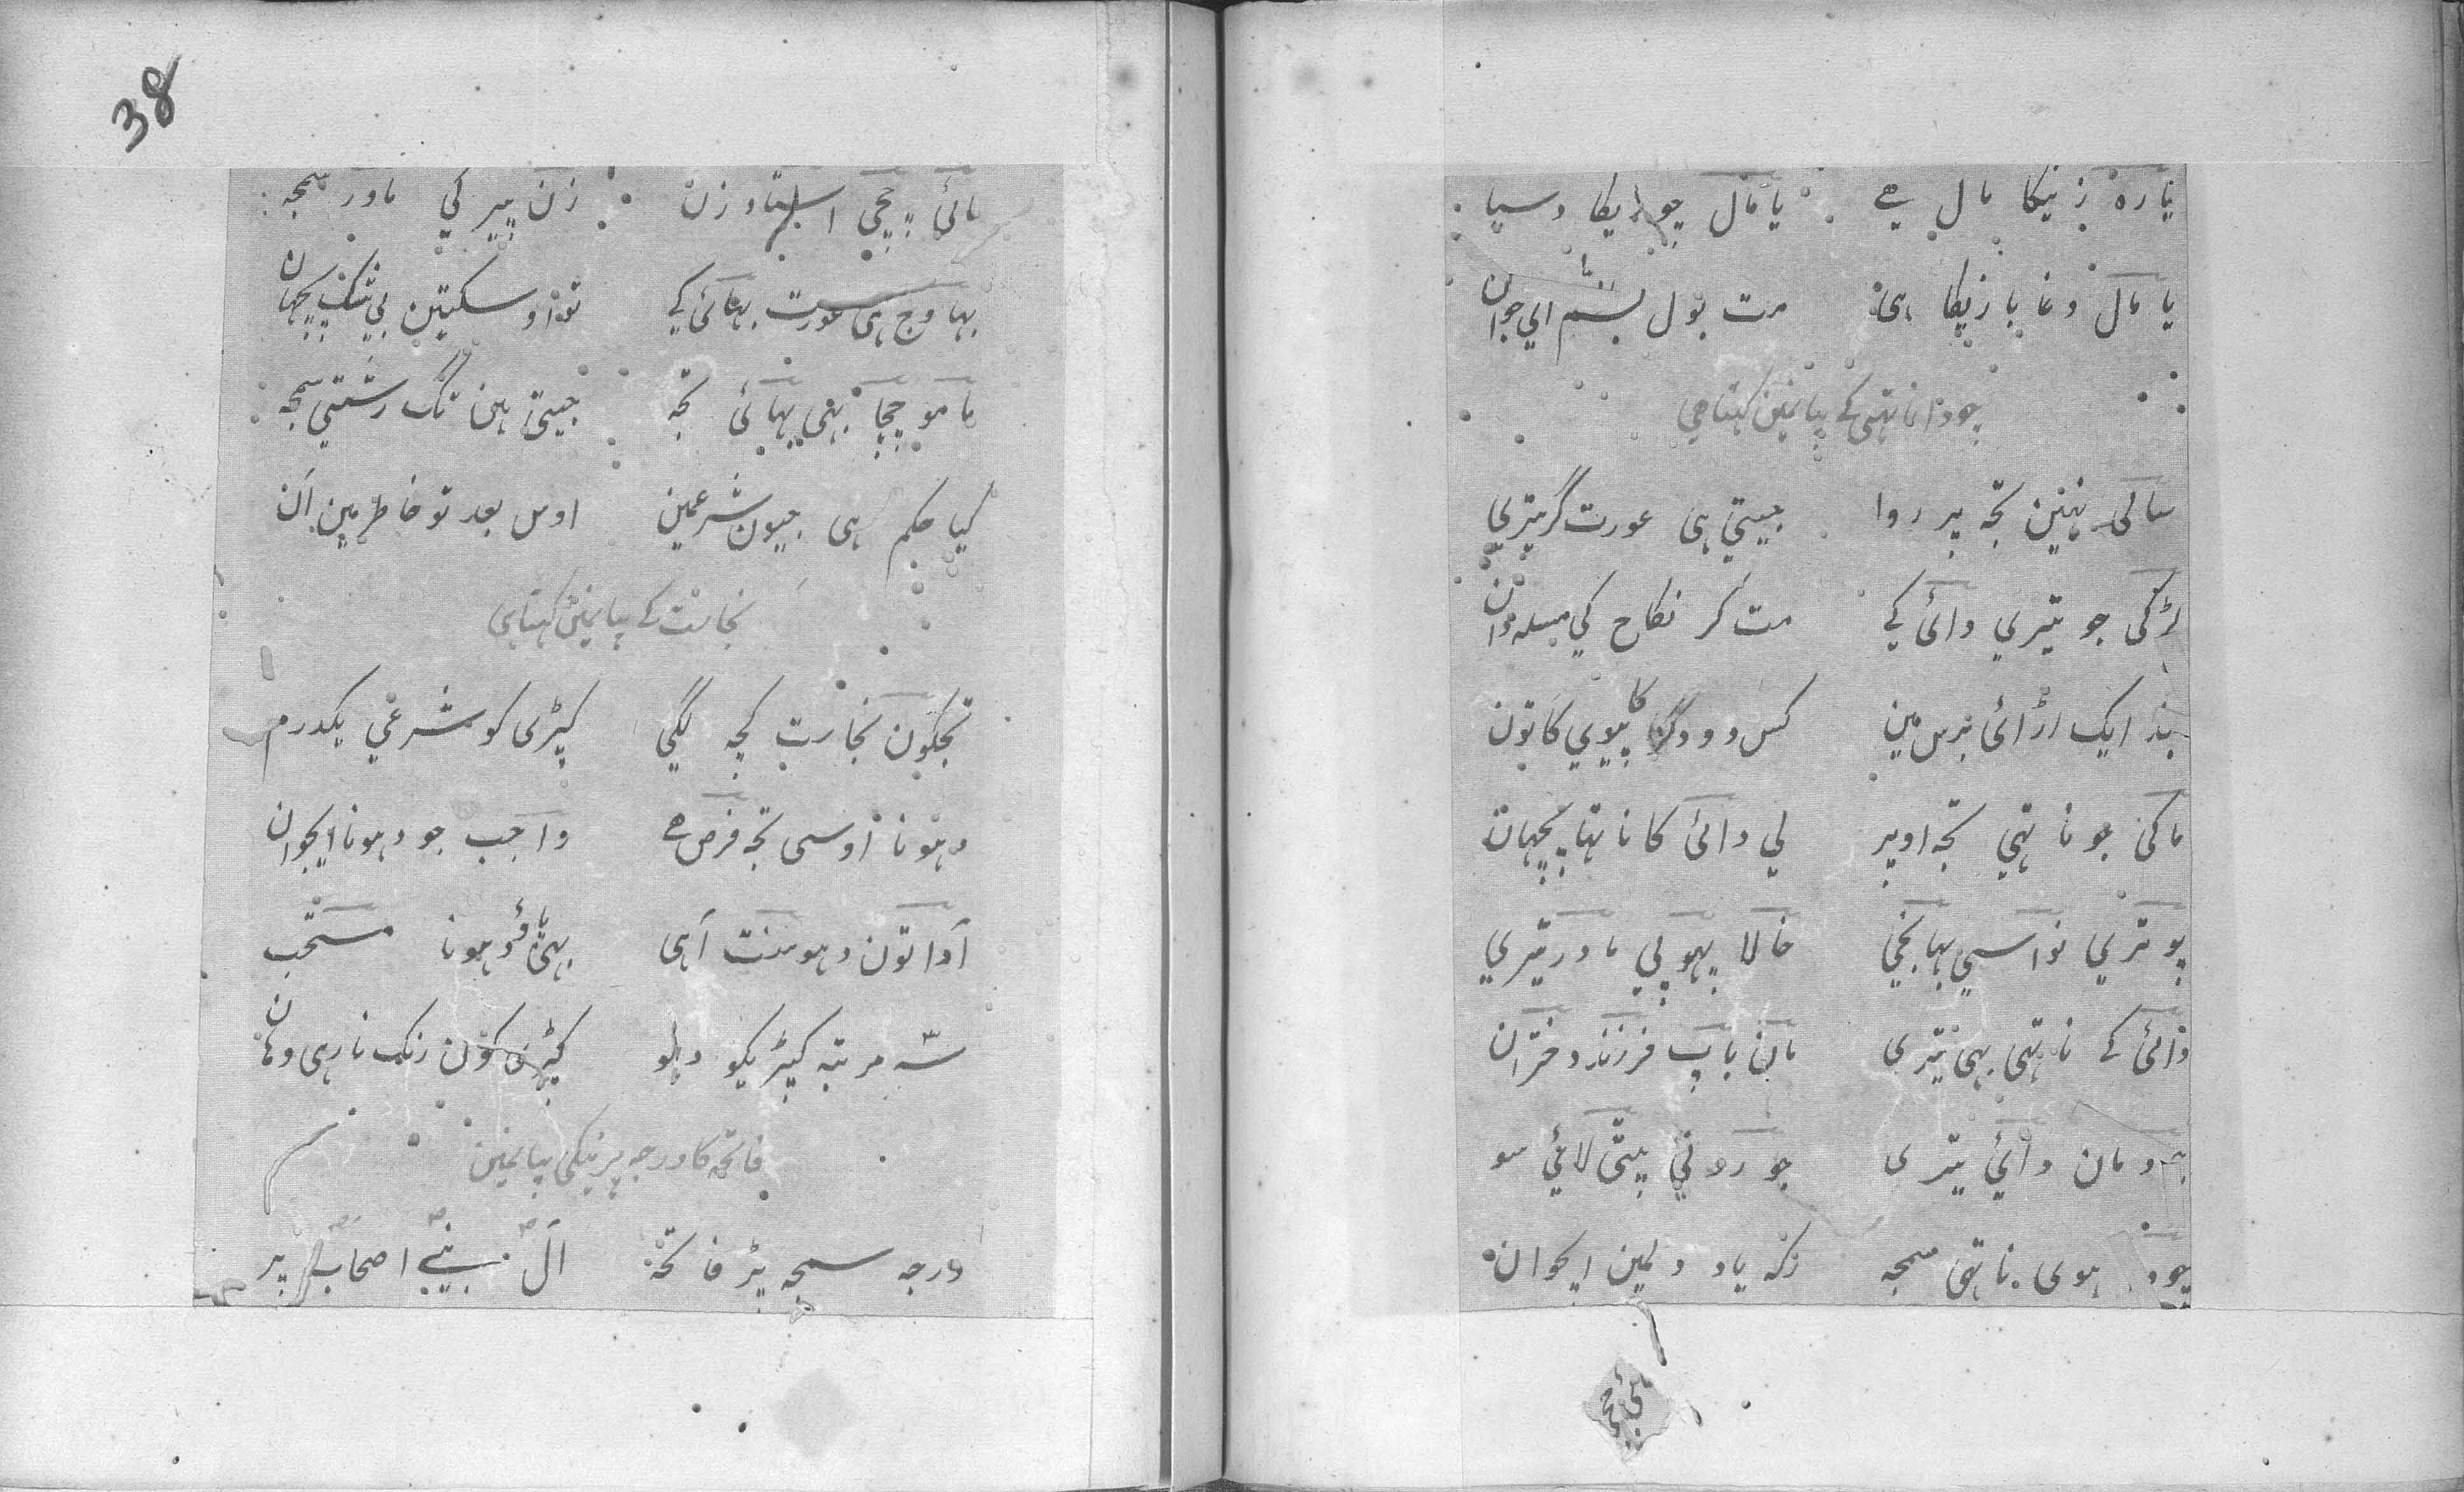 یا رہ زنیکا مال ہے یا مال چورایکا وسیا
یا مال دغا بازیکا ہی مت بول بسم ای جوان
چودا ناتہی کے بیا نمین کہتا ہی
سالی نہین تجہ پر روا جیتی ہی عورت گر تیری
لڑکی جو تیری دائی کے مت کر نکاح کی میلہ وان
بند ایک اڑائی برس مین کس دودکا پیوی کا تون
ما کی جو ناتہی تجہ اوپر لی دائی کا ناتہا پچہان
پوتری نواسی بہانجی خالا پہوپی مادر تیری
دائی کے ناتہی بہی تیری مان باپ فرزند دختران
مان دائی تیری جو رونی بیتی لائی سو
ہوی ناتہی سمجہ رکہ یاد دلمین ایجوان
مائی چچی
38
مائی چچی استاد زن زن پیر کی مادر سمجہ
بہاوج ہی عورت بہائی کے تو اوسکیتین بی شک پچہان
مامو چچا بہی بہائی تجہ جیتی ہین تگ رشتی سمجہ
کیا حکم ہی جیون شرع مین اوس بعد تو خاطر مین آن
نجاست کے بیا نمین کہتا ہی
تجکون نجاست کچہ لگی کپڑی کو شرعی یکدرم
دہونا اوسی تجہ فرض ہے واجب جو دہونا ایجوان
آدا تون دہو سنت آہی بہی پاؤ دہونا مستحب
سہ مرتبہ کپڑیکو دہو کپڑی کون رنک نا رہی وہان
فاتحہ کا درجہ پرنیکی بیا نمین
درجہ سمجہ پڑ فاتحہ آل نبی اصحاب پر